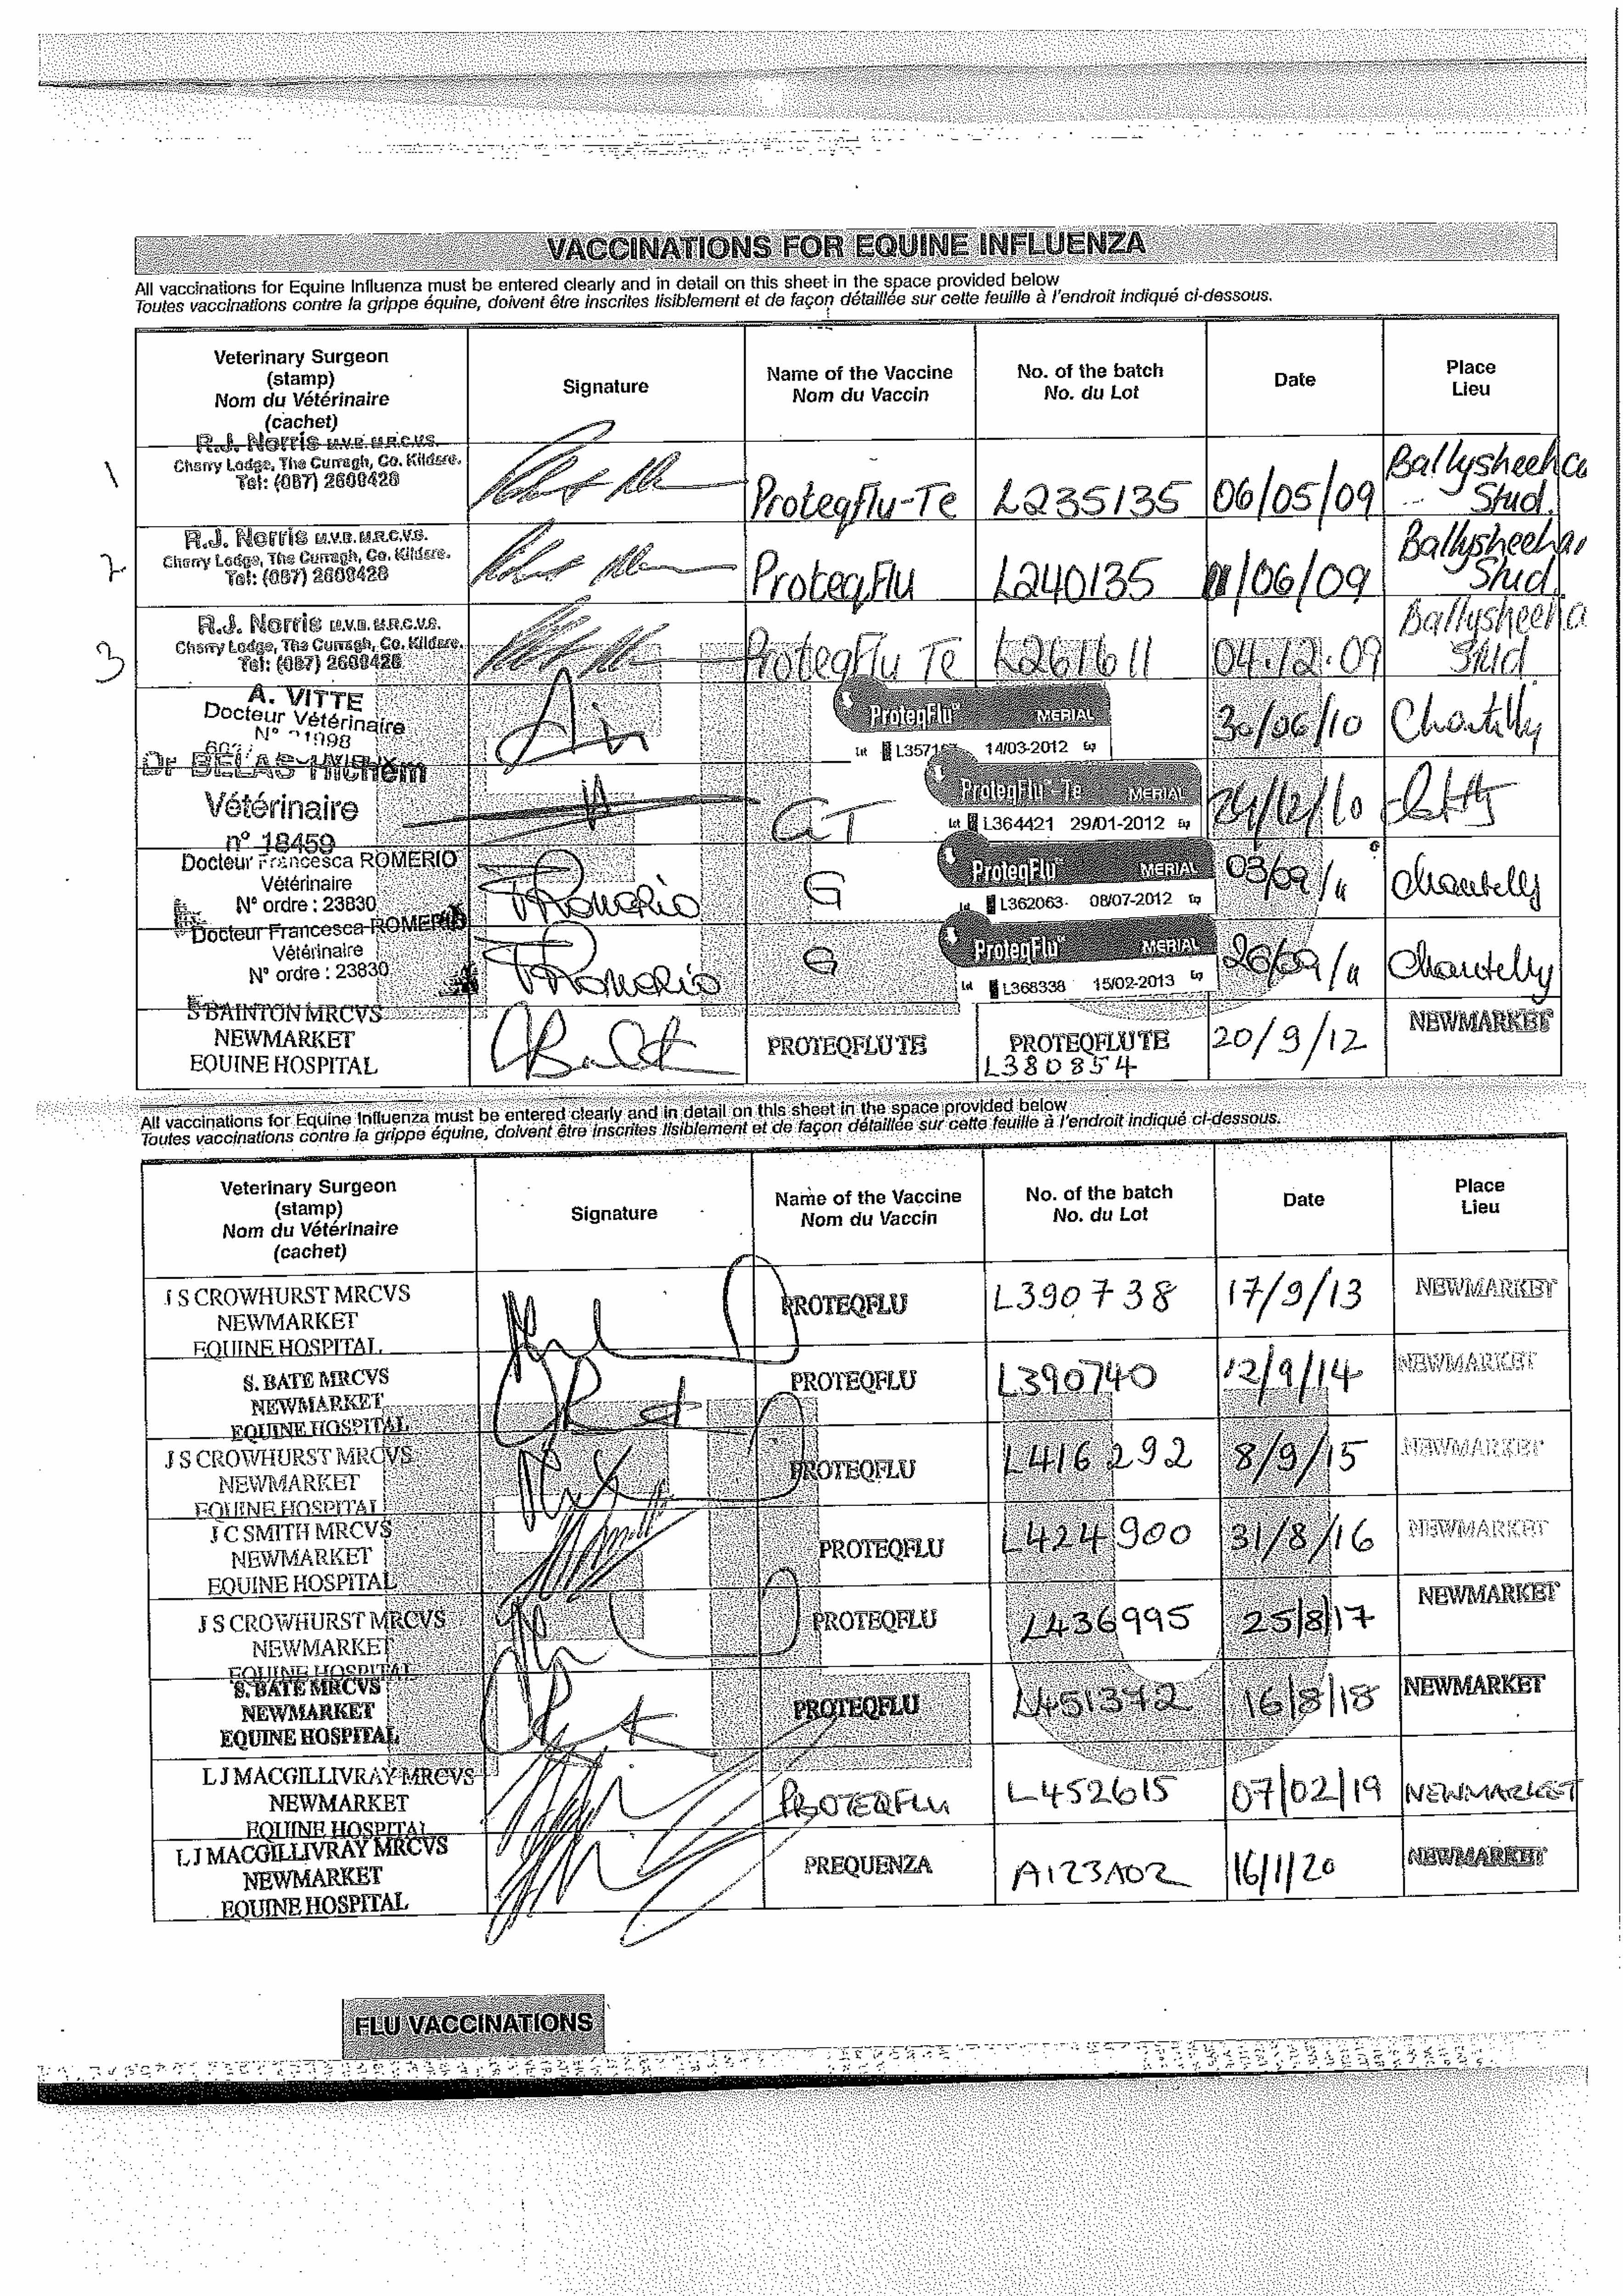 VACCINATIONS FOR EQUINE INFLUENZA
All vaccinations for Equine Influenza must be entered clearly and in detail on this sheet in the space provided below
Toutes vaccinations contre la grippe équine, doivent être inscrites lisiblement et de façon détaillée sur cette feuille à l'endroit indiqué ci-dessous.
Veterinary Surgeon
(stamp)
Nom du Vétérinaire
(cachet)
Signature
Name of the Vaccine
Nom du Vaccin
No. of the batch
No. du Lot
Date
Place
Lieu
1
R.J. Norris M.V.B. M.R.C.V.S.
Cherry Lodge, The Curragh, Co. Kildare.
Tel: (087) 2608428
ProteqFlu-Te
L235135
06/05/09
Ballysheehan
Stud.
2
R.J. Norris M.V.B. M.R.C.V.S.
Cherry Lodge, The Curragh, Co. Kildare.
Tel: (087) 2608428
ProteqFlu
L240135
/06/09
Ballysheehan
Stud.
3
R.J. Norris M.V.B. M.R.C.V.S.
Cherry Lodge, The Curragh, Co. Kildare.
Tel: (087) 2608428
ProteqFlu Te
L261611
04.12.09
Ballysheeha
Stud
A. VITTE
Docteur Vétérinaire
N° 21998
ProteqFlu MERIAL
Lot L357 14/03-2012 Exp
30/06/10
Chantilly
Dr BELAS Hichem
Vétérinaire
n° 18459
GT
ProteqFlu-Te MERIAL
Lot L364421 29/01-2012 Exp
24/12/10
Docteur Francesca ROMERIO
Vétérinaire
N° ordre : 23830
FRomerio
G
ProteqFlu MERIAL
Lot L362063 08/07-2012 Exp
03/09/11
Chantilly
Docteur Francesca ROMERIO
Vétérinaire
N° ordre : 23830
FRomerio
G
ProteqFlu MERIAL
Lot L368338 15/02-2013 Exp
26/09/11
Chantilly
S BAINTON MRCVS
NEWMARKET
EQUINE HOSPITAL
PROTEQFLU TE
PROTEQFLU TE
L380854
20/9/12
NEWMARKET
All vaccinations for Equine Influenza must be entered clearly and in detail on this sheet in the space provided below
Toutes vaccinations contre la grippe équine, doivent être inscrites lisiblement et de façon détaillée sur cette feuille à l'endroit indiqué ci-dessous.
Veterinary Surgeon
(stamp)
Nom du Vétérinaire
(cachet)
Signature
Name of the Vaccine
Nom du Vaccin
No. of the batch
No. du Lot
Date
Place
Lieu
J S CROWHURST MRCVS
NEWMARKET
EQUINE HOSPITAL
PROTEQFLU
L390738
17/9/13
NEWMARKET
S. BATE MRCVS
NEWMARKET
EQUINE HOSPITAL
PROTEQFLU
L390740
12/9/14
NEWMARKET
J S CROWHURST MRCVS
NEWMARKET
EQUINE HOSPITAL
PROTEQFLU
L416292
8/9/15
NEWMARKET
J C SMITH MRCVS
NEWMARKET
EQUINE HOSPITAL
PROTEQFLU
L424900
31/8/16
NEWMARKET
J S CROWHURST MRCVS
NEWMARKET
EQUINE HOSPITAL
PROTEQFLU
L436995
25/8/17
NEWMARKET
S. BATE MRCVS
NEWMARKET
EQUINE HOSPITAL
PROTEQFLU
L451372
16/8/18
NEWMARKET
L J MACGILLIVRAY MRCVS
NEWMARKET
EQUINE HOSPITAL
PROTEQFLU
L452615
07/02/19
NEWMARKET
L J MACGILLIVRAY MRCVS
NEWMARKET
EQUINE HOSPITAL
PREQUENZA
A123A02
16/1/20
NEWMARKET
FLU VACCINATIONS